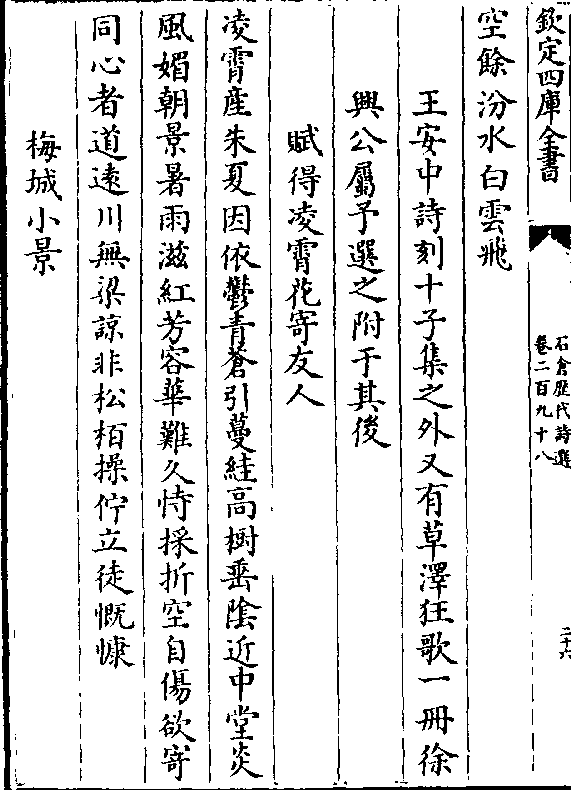 欽定四庫全書
石倉歷代詩選
卷二百九十八
二十六
空餘汾水白雲飛
王安中詩刻十子集之外又有草澤狂歌一冊徐
興公屬予選之附于其後
賦得凌霄花寄友人
凌霄産朱夏因依鬱青蒼引蔓絓高樹垂陰近中堂炎
風媚朝景暑雨滋紅芳容華難久恃採折空自傷欲寄
同心者道遠川無梁諒非松栢操佇立徒慨慷
梅城小景